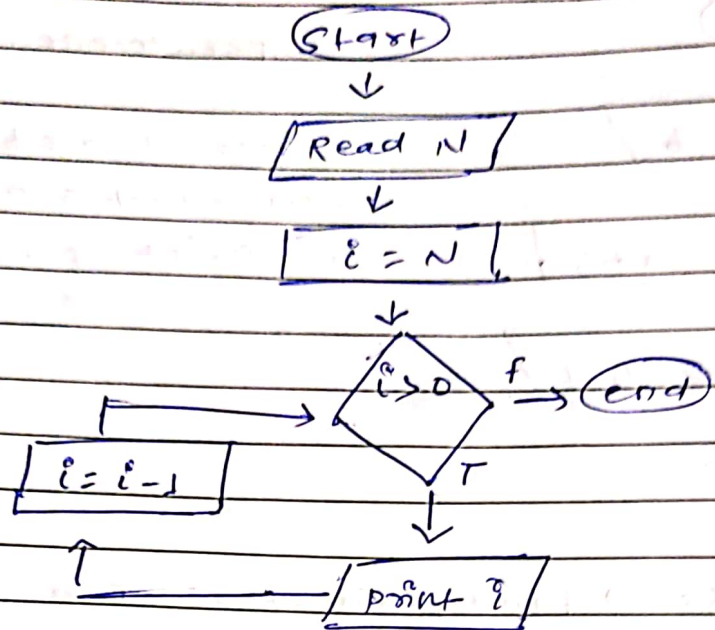 Start
Read N
i = N
i > 0
f
end
i = i - 1
T
print i